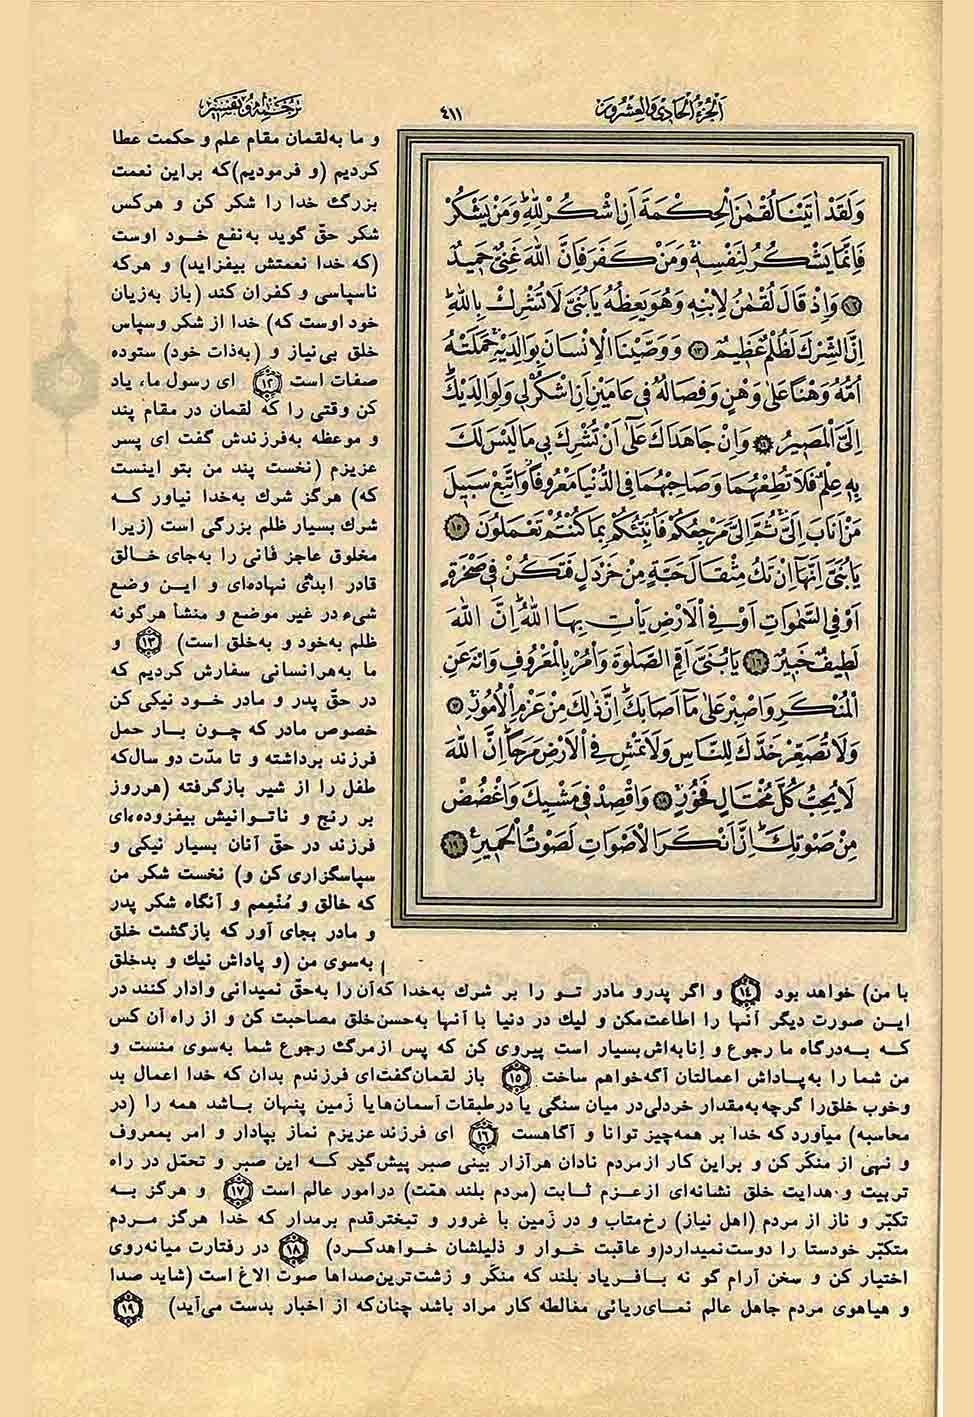 اَلْجُزْءُ الْحَادِي وَالْعِشْرُونَ
٤١١
ترجمه و تفسیر
وَلَقَدْ اٰتَيْنَا لُقْمٰنَ الْحِكْمَةَ اَنِ اشْكُرْ لِلّٰهِ وَمَنْ يَشْكُرْ
فَاِنَّمَا يَشْكُرُ لِنَفْسِهٖ وَمَنْ كَفَرَ فَاِنَّ اللّٰهَ غَنِيٌّ حَمِيدٌ
﴿١٢﴾ وَاِذْ قَالَ لُقْمٰنُ لِابْنِهٖ وَهُوَ يَعِظُهُ يَابُنَيَّ لَا تُشْرِكْ بِاللّٰهِ
اِنَّ الشِّرْكَ لَظُلْمٌ عَظِيمٌ ﴿١٣﴾ وَوَصَّيْنَا الْاِنْسَانَ بِوَالِدَيْهِ حَمَلَتْهُ
اُمُّهُ وَهْنًا عَلٰى وَهْنٍ وَفِصَالُهُ فِي عَامَيْنِ اَنِ اشْكُرْ لِي وَلِوَالِدَيْكَ
اِلَيَّ الْمَصِيرُ ﴿١٤﴾ وَاِنْ جَاهَدَاكَ عَلٰٓى اَنْ تُشْرِكَ بِي مَا لَيْسَ لَكَ
بِهٖ عِلْمٌ فَلَا تُطِعْهُمَا وَصَاحِبْهُمَا فِي الدُّنْيَا مَعْرُوفًا وَاتَّبِعْ سَبِيلَ
مَنْ اَنَابَ اِلَيَّ ثُمَّ اِلَيَّ مَرْجِعُكُمْ فَاُنَبِّئُكُمْ بِمَا كُنْتُمْ تَعْمَلُونَ ﴿١٥﴾
يَابُنَيَّ اِنَّهَا اِنْ تَكُ مِثْقَالَ حَبَّةٍ مِنْ خَرْدَلٍ فَتَكُنْ فِي صَخْرَةٍ
اَوْ فِي السَّمٰوَاتِ اَوْ فِي الْاَرْضِ يَأْتِ بِهَا اللّٰهُ اِنَّ اللّٰهَ
لَطِيفٌ خَبِيرٌ ﴿١٦﴾ يَابُنَيَّ اَقِمِ الصَّلٰوةَ وَأْمُرْ بِالْمَعْرُوفِ وَانْهَ عَنِ
الْمُنْكَرِ وَاصْبِرْ عَلٰى مَا اَصَابَكَ اِنَّ ذٰلِكَ مِنْ عَزْمِ الْاُمُورِ ﴿١٧﴾
وَلَا تُصَعِّرْ خَدَّكَ لِلنَّاسِ وَلَا تَمْشِ فِي الْاَرْضِ مَرَحًا اِنَّ اللّٰهَ
لَا يُحِبُّ كُلَّ مُخْتَالٍ فَخُورٍ ﴿١٨﴾ وَاقْصِدْ فِي مَشْيِكَ وَاغْضُضْ
مِنْ صَوْتِكَ اِنَّ اَنْكَرَ الْاَصْوَاتِ لَصَوْتُ الْحَمِيرِ ﴿١٩﴾
و ما به‌لقمان مقام علم و حکمت عطا
کردیم (و فرمودیم)که براین نعمت
بزرگ خدا را شکر کن و هرکس
شکر حقّ گوید به‌نفع خود اوست
(که خدا نعمتش بیفزاید) و هرکه
ناسپاسی و کفران کند (باز به‌زیان
خود اوست که) خدا از شکر وسپاس
خلق بی‌نیاز و (به‌ذات خود) ستوده
صفات است ﴿۱۲﴾ ای رسول ما، یاد
کن وقتی را که لقمان در مقام پند
و موعظه به‌فرزندش گفت ای پسر
عزیزم (نخست پند من بتو اینست
که) هرگز شرك به‌خدا نیاور کـه
شرك بسیار ظلم بزرگی است (زیرا
مخلوق عاجز فانی را به‌جای خـالق
قادر ابدی نهاده‌ای و ایـن وضع
شیء در غیر موضع و منشأ هرگونه
ظلم به‌خود و به‌خلق است) ﴿۱۳﴾ و
ما به‌هرانسانی سفارش کردیم که
در حقّ پدر و مادر خـود نیکی کن
خصوص مادر که چـون بـار حمل
فرزند برداشته و تا مدّت دو سال‌که
طفل را از شیر بازگرفته (هرروز
بر رنج و ناتـوانیش بیفزوده،ای
فرزند در حق آنان بسیار نیکی و
سپاسگزاری کن و) نخست شکر من
که خالق و مُنْعِمم و آنگاه شکر پدر
و مادر بجای آور که بازگشت خلق
به‌سوی من (و پاداش نیك و بدخلق
با من) خواهد بود ﴿۱۴﴾ و اگر پدرو مادر تـو را بر شرك به‌خدا که‌آن را به‌حقّ نمیدانی وادار کنند در
ایـن صورت دیگر آنها را اطاعت‌مکن و لیك در دنیا با آنها به‌حسن‌خلق مصاحبت کن و از راه آن کس
کـه بـه‌درگاه ما رجوع و اِنابه‌اش‌بسیار است پیروی کن که پس ازمرگ رجوع شما به‌سوی منست و
من شما را به‌پاداش اعمالتان آگه‌خواهم ساخت ﴿۱۵﴾ باز لقمان‌گفت‌ای فرزندم بدان که خدا اعمال بد
وخوب خلق‌را گرچه‌به‌مقدار خردلی‌در میان سنگی یا درطبقات آسمان‌هایا زمین پنهان بـاشد همه را (در
محاسبه) میآورد که خدا بر همه‌چیز توانا و آگاهست ﴿۱۶﴾ ای فرزند عزیزم نماز بپادار و امر بمعروف
و نهی از منکر کن و براین کار ازمردم نادان هرآزار بینی صبر پیش‌گیر کـه این صبر و تحمّل در راه
تربیت و هدایت خلق نشانه‌ای ازعـزم ثـابت (مردم بلند همّت) درامور عالم است ﴿۱۷﴾ و هرگز بـه
تکبّر و ناز از مردم (اهل نیاز) رخ‌متاب و در زمین با غرور و تبخترقدم برمدار که خدا هرگز مـردم
متکبّر خودستا را دوست‌نمیدارد(و عاقبت خـوار و ذلیلشان خـواهدکـرد) ﴿۱۸﴾ در رفتارت میانه‌روی
اختیار کن و سخن آرام گو نه بـافـریاد بلند که منکر و زشت‌ترین‌صداها صوت الاغ است (شاید صدا
و هیاهوی مردم جاهل عالم نمـای‌ریائی مغالطه کار مراد باشد چنان‌که از اخبار بدست می‌آید) ﴿۱۹﴾